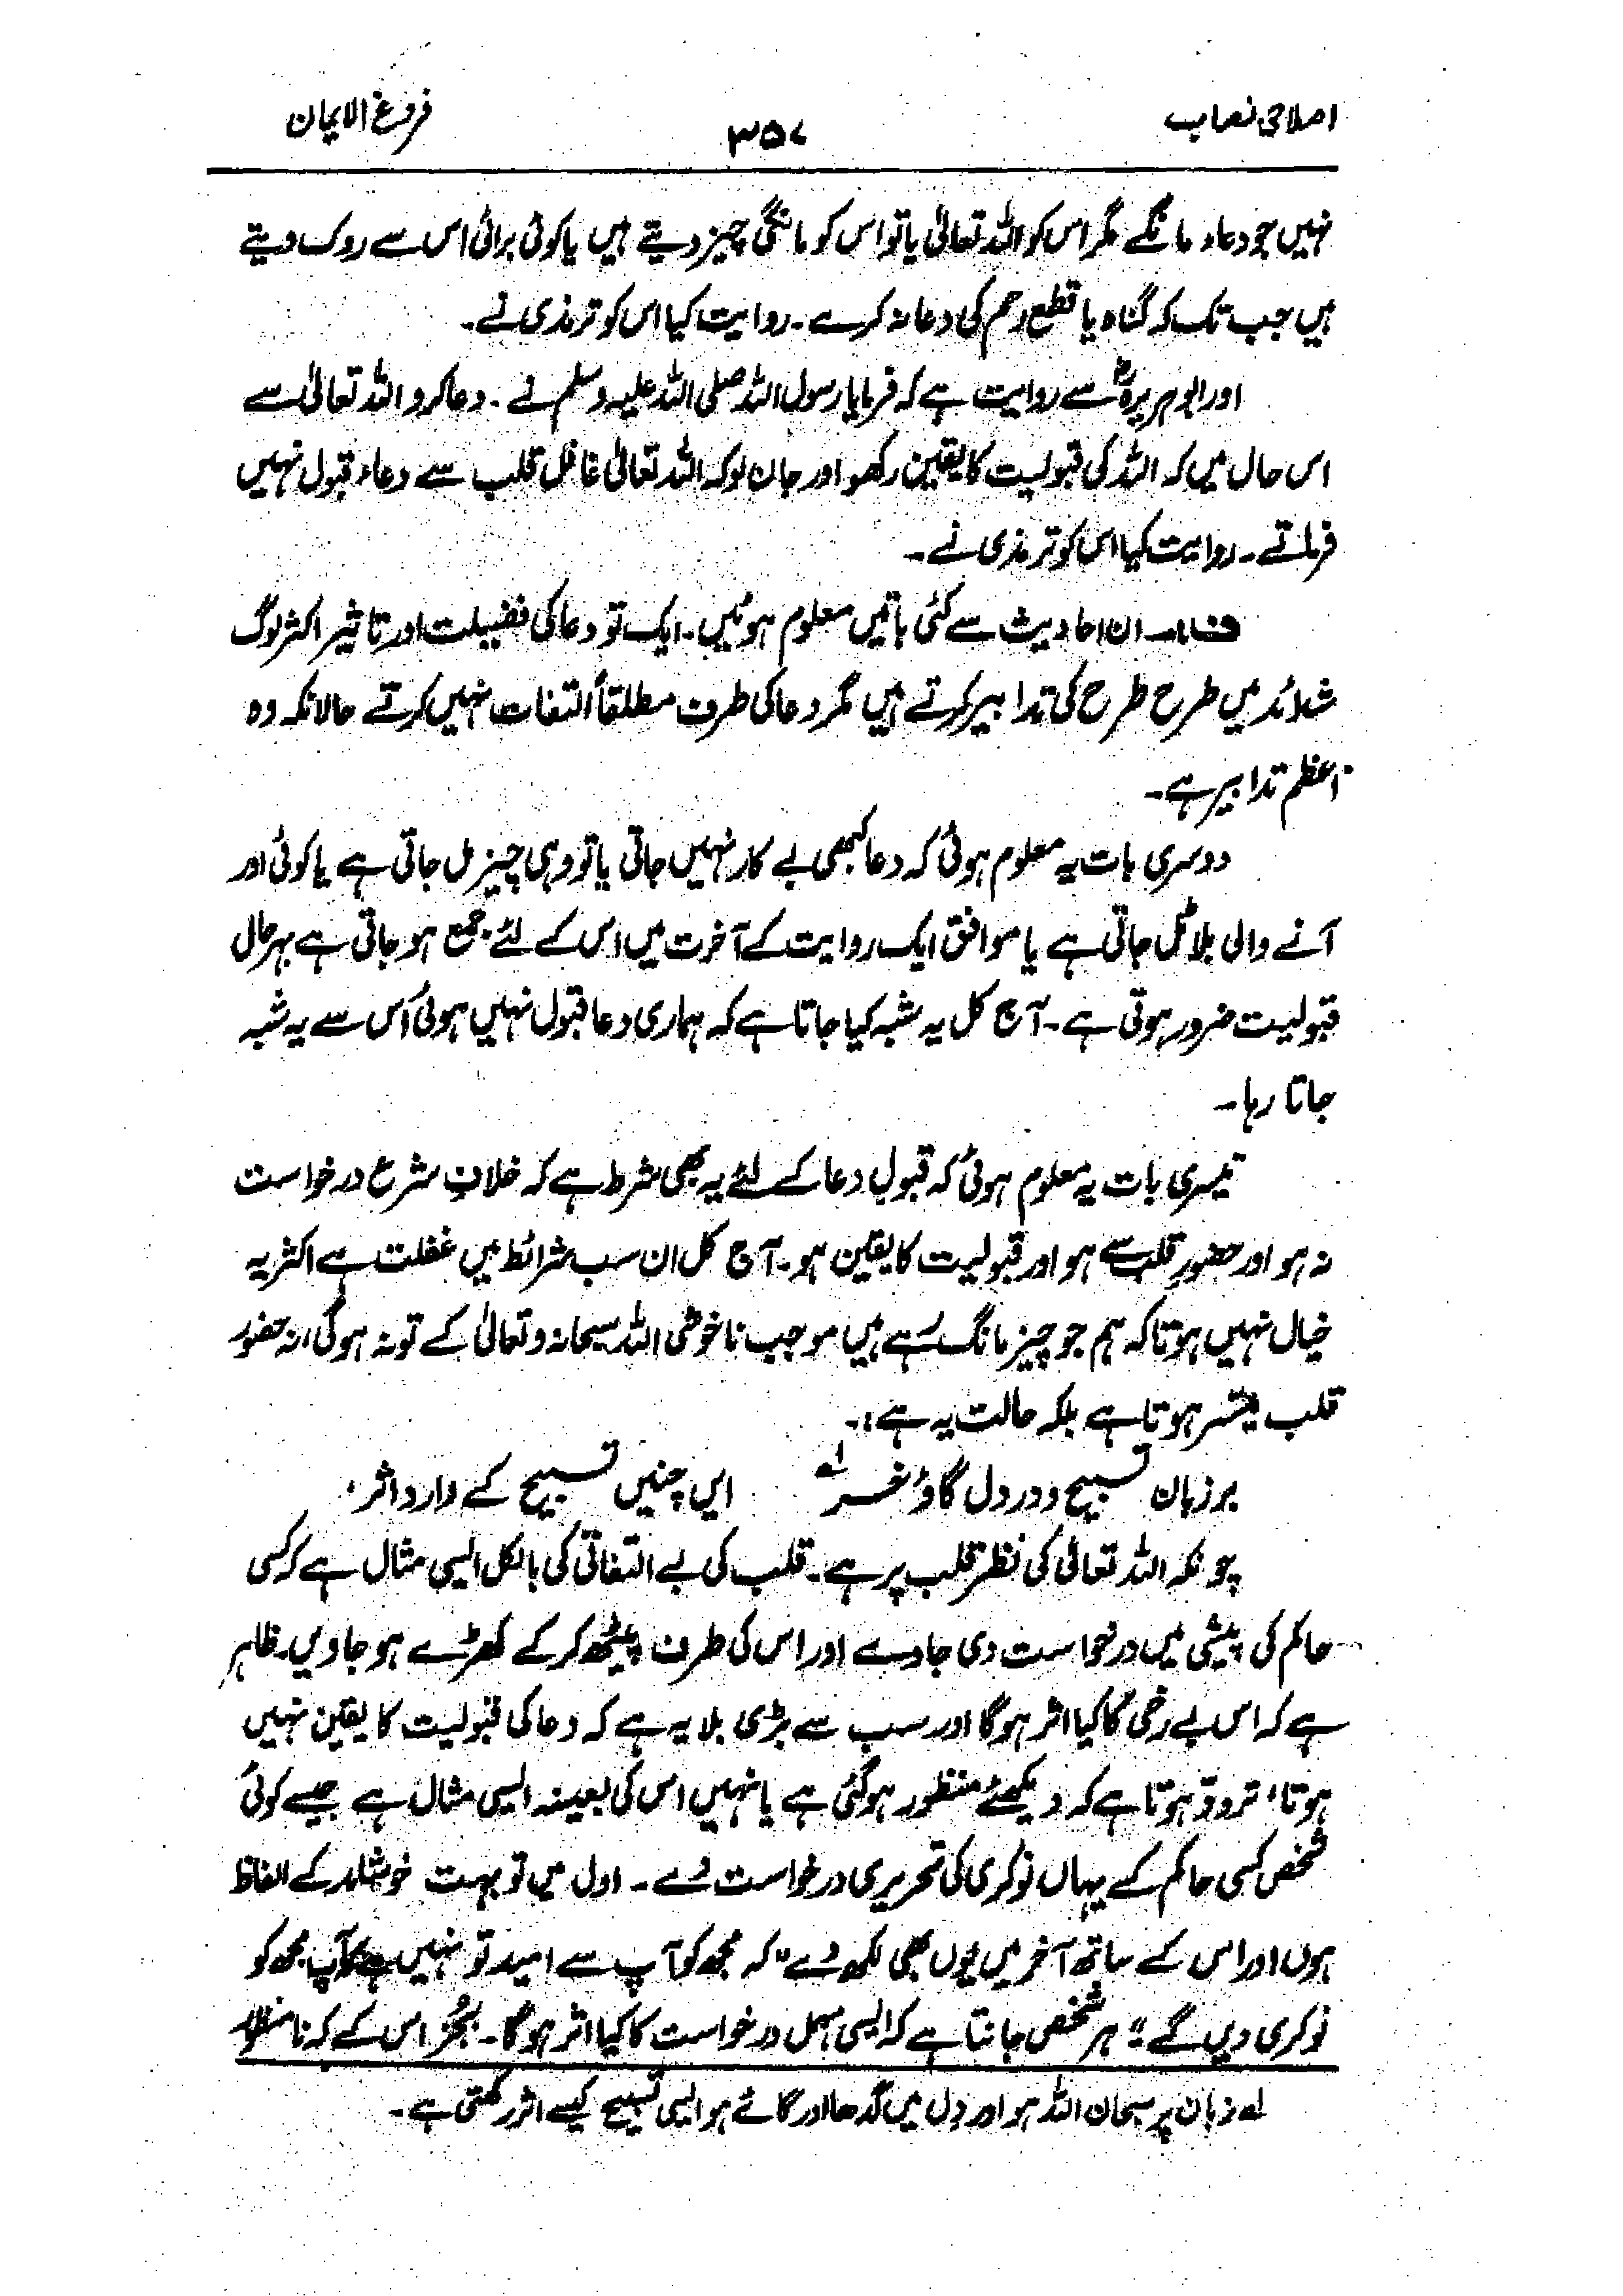 اصلاحی نصاب
۳۵۷
فروغ الایمان
نہیں جو دعاء مانگے مگر اس کو اللہ تعالیٰ یا تو اس کو مانگی چیز دیتے ہیں یا کوئی برائی اس سے روک دیتے
ہیں جب تک کہ گناہ یا قطع رحم کی دعا نہ کرے۔ روایت کیا اس کو ترمذی نے۔
اور ابوہریرہؓ سے روایت ہے کہ فرمایا رسول اللہ صلی اللہ علیہ وسلم نے۔ دعا کرو اللہ تعالیٰ سے
اس حال میں کہ اللہ کی قبولیت کا یقین رکھو اور جان لو کہ اللہ تعالیٰ غافل قلب سے دعاء قبول نہیں
فرماتے۔ روایت کیا اس کو ترمذی نے۔
ان احادیث سے کئی باتیں معلوم ہوئیں۔ ایک تو دعا کی فضیلت اور تاثیر اکثر لوگ
شدائد میں طرح طرح کی تدابیر کرتے ہیں مگر دعا کی طرف مطلقاً التفات نہیں کرتے حالانکہ وہ
اعظم تدابیر ہے۔
دوسری بات یہ معلوم ہوئی کہ دعا کبھی بے کار نہیں جاتی یا تو وہی چیز مل جاتی ہے یا کوئی اور
آنے والی بلا ٹل جاتی ہے یا موافق ایک روایت کے آخرت میں اس کے لئے جمع ہو جاتی ہے بہرحال
قبولیت ضرور ہوتی ہے۔ آج کل یہ شبہ کیا جاتا ہے کہ ہماری دعا قبول نہیں ہوئی اس سے یہ شبہ
جاتا رہا۔
تیسری بات یہ معلوم ہوئی کہ قبولِ دعا کے لئے یہ بھی شرط ہے کہ خلافِ شرع درخواست
نہ ہو اور حضورِ قلب سے ہو اور قبولیت کا یقین ہو۔ آج کل ان سب شرائط میں غفلت ہے اکثر یہ
خیال نہیں ہوتا کہ ہم جو چیز مانگ رہے ہیں موجب ناخوشی اللہ سبحانہ و تعالیٰ کے تو نہ ہوگی نہ حضور
قلب میسر ہوتا ہے بلکہ حالت یہ ہے:۔
بر زبان تسبیح و در دل گاؤ خر لہ ایں چنیں تسبیح کے دارد اثر
چونکہ اللہ تعالیٰ کی نظر قلب پر ہے۔ قلب کی بے التفاتی کی بالکل ایسی مثال ہے کہ کسی
حاکم کی پیشی میں درخواست دی جاوے اور اس کی طرف پیٹھ کر کے کھڑے ہو جاویں۔ ظاہر
ہے کہ اس بے رخی کا کیا اثر ہوگا اور سب سے بڑی بلا یہ ہے کہ دعا کی قبولیت کا یقین نہیں
ہوتا، تردّد ہوتا ہے کہ دیکھئے منظور ہوگئی ہے یا نہیں اس کی بعینہ ایسی مثال ہے جیسے کوئی
شخص کسی حاکم کے یہاں نوکری کی تحریری درخواست دے۔ اول میں تو بہت خوشامد کے الفاظ
ہوں اور اس کے ساتھ آخر میں یوں بھی لکھ دے "کہ مجھ کو آپ سے امید تو نہیں آپ مجھ کو
نوکری دیں گے" ہر شخص جانتا ہے کہ ایسی مہمل درخواست کا کیا اثر ہوگا۔ بجز اس کے کہ نامنظور
لہ زبان پر سبحان اللہ ہو اور دل میں گدھا اور گائے ہو ایسی تسبیح کیسے اثر رکھتی ہے۔